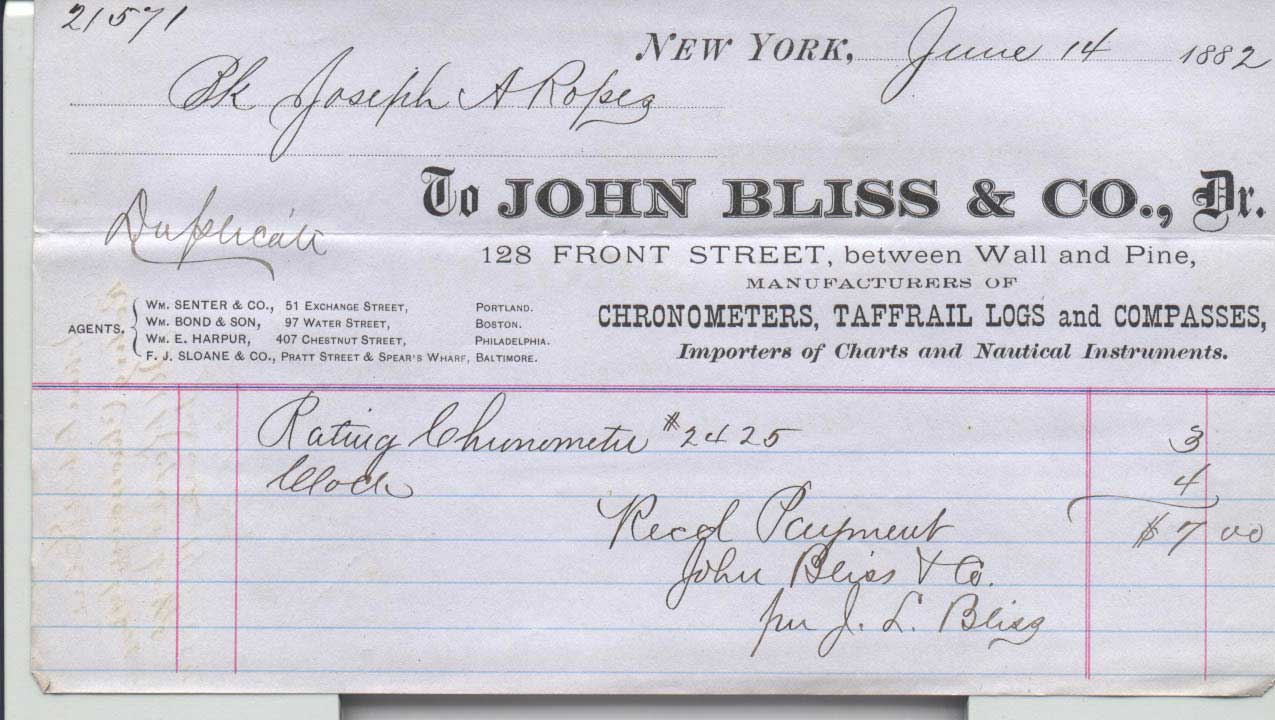 21571
NEW YORK, June 14 1882
Bk Joseph A Ropes
To JOHN BLISS & CO., Dr.
Duplicate
128 FRONT STREET, between Wall and Pine,
MANUFACTURERS OF
CHRONOMETERS, TAFFRAIL LOGS and COMPASSES,
Importers of Charts and Nautical Instruments.
AGENTS.
WM. SENTER & CO., 51 EXCHANGE STREET, PORTLAND.
WM. BOND & SON, 97 WATER STREET, BOSTON.
WM. E. HARPUR, 407 CHESTNUT STREET, PHILADELPHIA.
F. J. SLOANE & CO., PRATT STREET & SPEAR'S WHARF, BALTIMORE.
Rating Chronometer #2425 3
Clock 4
$7 00
Recd Payment
John Bliss & Co.
per J. L. Bliss